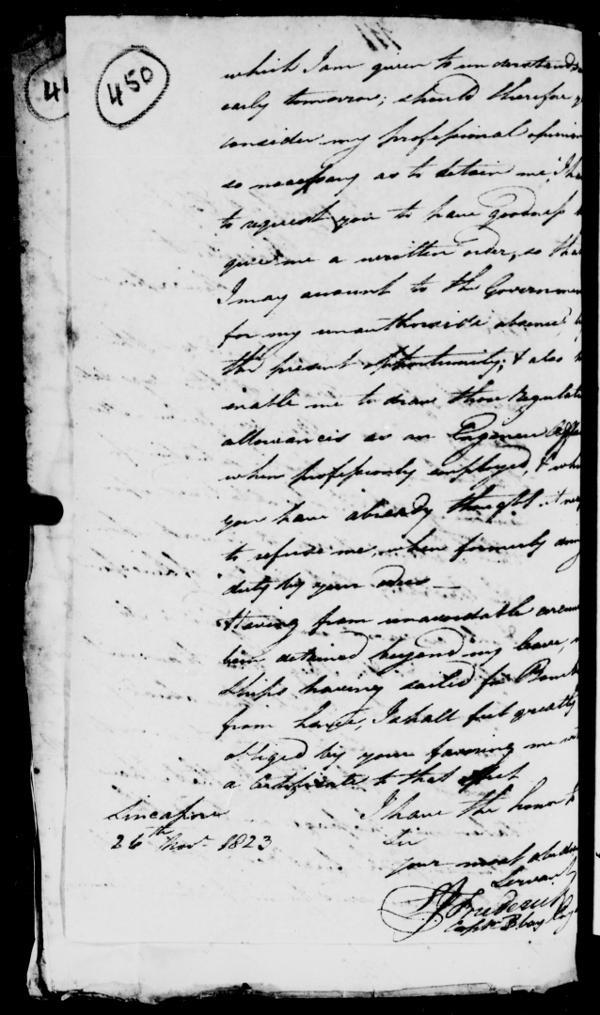 450
which I am given to understand
early tomorrow; should therefore
consider my professional opinion
so necessary as to detain me, I
to request you to have goodness
give me a written order, so that
I may account to the Governmen
for my unauthorised absence,
the present opportunity; & also
enable me to draw those regulat
allowances as an Engineer
when professionly employed, &
you have already thought
to refuse me, when formerly
duty by your
Having from unavoidable circum
been detained beyond my leave,
Ships having sailed for
from hence, I shall feel greatly
obliged by your favoring me
a Certificate to that effect
I have the honor
Sir
your most obedi
Servant
Frederick
Captn. Bbay
Sincapore
26th Novr. 1823